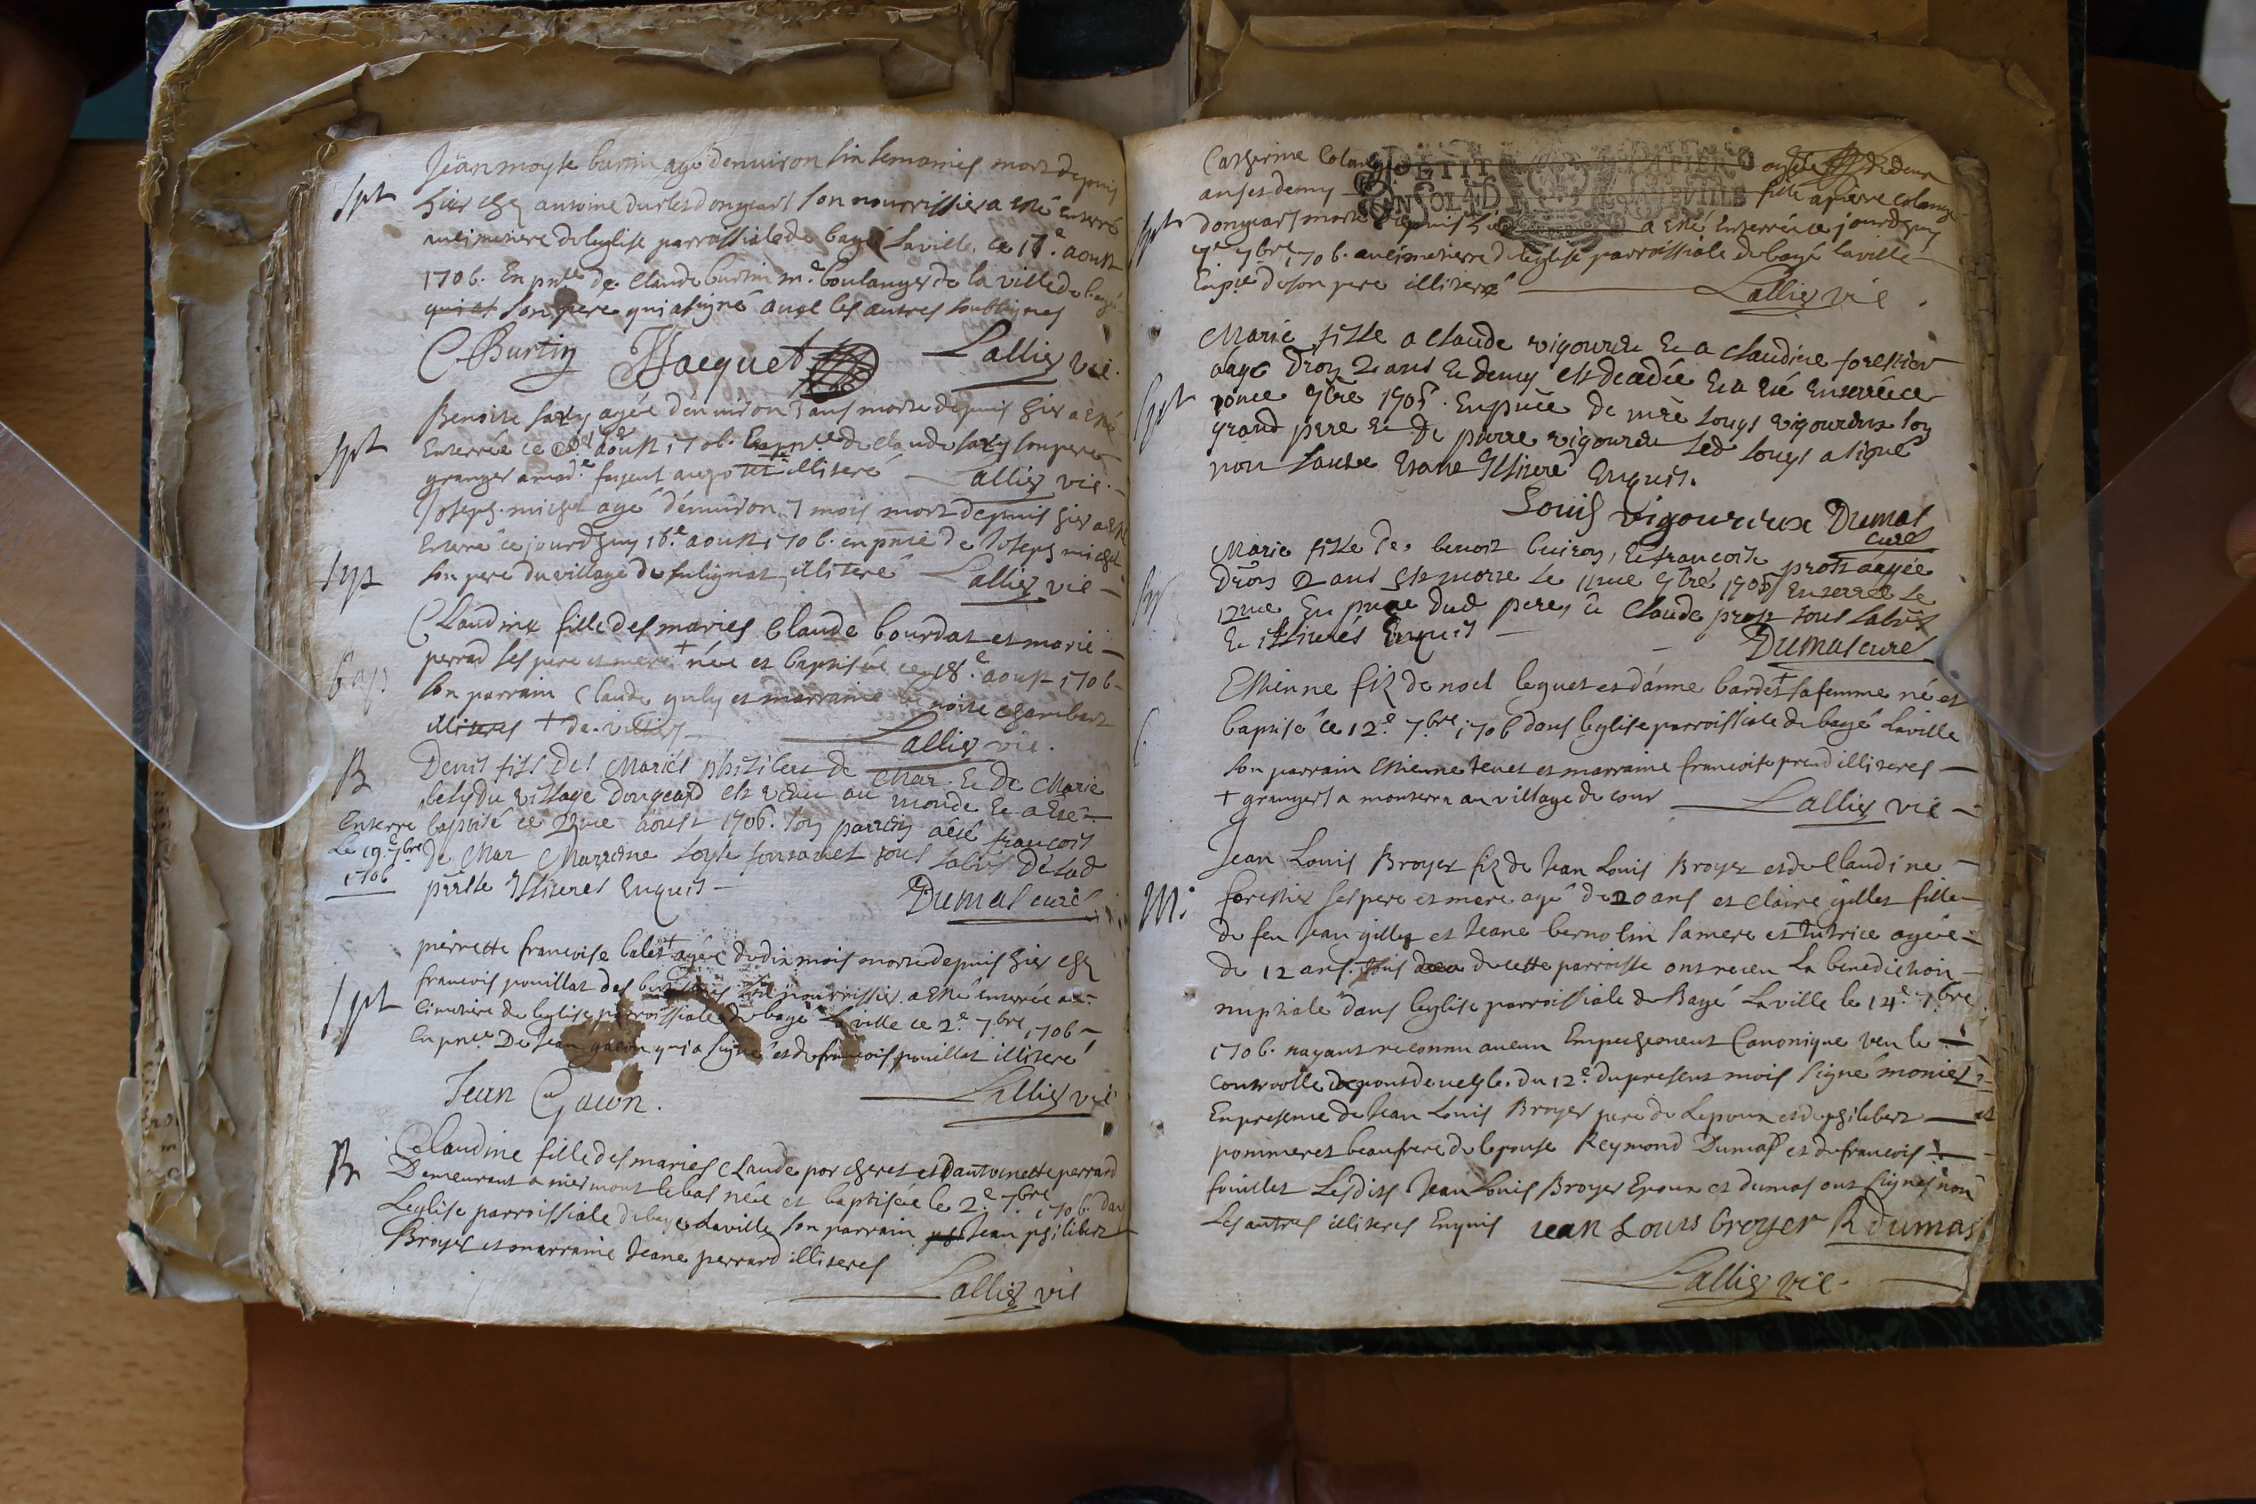 Jean moyse burtin agé denuiron six semaines mort depuis
Spt
hier chez antoine durlet dongeart son nourrissier a esté enterré
au cimetiere de leglise parrossiale de bagé laville ce 17e aoust
1706. En pnce de Claude burtin me boulanger de la ville de bagé
qui est son pere qui a signé avec les autres soubsignes
C. Burtin Jacquet Lallier vic.
Benoite agée denuiron 3 ans morte depuis hier a esté
Spt
Enterrée ce aoust 1706. En pnce de Claude son pere
granger a made au illiteré Lallier vic.
Joseph michel agé denuiron 7 mois mort depuis hier a esté
Enterré ce jourdhuy 18e aoust 1706. en pnce de Joseph michel
Spt
son pere du village de illiteré Lallier vic
Claudine fille des mariés Claude bourdat et marie
perrad ses pere et mere + née et baptisée ce 18e aoust 1706
bap
son parrain Claude et marraine benoite chambert
illiteres + de Lallier vic.
B
Denis fils des Mariés philibert de Mar. et de Marie
du village dongeard est venu au monde et a esté
Enterre
baptisé ce aoust 1706. son parrain a esté françois
Le 19e 7bre
de Mar Marraine fontanet tous
1706
psse Illiteres Enquis
Dumas curé
pierrette francoise balet + agée de dix mois morte depuis hier chez
francois pouillat des nourrissier a esté enterrée au
Spt
cimetiere de leglise parroissiale de bagé la ville ce 2e 7bre 1706
En pnce De Jean gacon qui a signé et de francois pouillat illiteré
Jean Gacon. Lallier vic
Claudine fille des mariés Claude porcheret et Dantoinette perrard
B
Demeurant a miermont le bas née et baptisée le 2e 7bre 1706. dans
Leglise parroissiale de bagé Laville son parrain Jean philibert
Broyer et marraine Jeane perrard illiteres
Lallier vic
Catherine Colange agée de deux
PETIT PAPIER
ans et demy fille a pierre Colange
CON SOLAD
Spt
dongeart morte depuis hier a esté Enterrée ce jourdhuy
7bre 1706. au cimetierre de leglise parroissiale de bagé laville
En pce de son pere illiteré Lallier vic
Marie fille a Claude vigoureu et a Claudine forestier
aagé Dron 2 ans et demy est decedée et a eté enterrée ce
Spt
7bre 1706. En pnce de mre Louys vigoureux son
grand pere et de pierre vigoureu led Louys a signé
non lautre Illiteré Enquis.
Louis vigourieux Dumas
curé
Marie fille de benoit buiron, et francoise prost aagée
Dron 2 ans est morte le 11me 7bre 1706 enterrée le
12me En pnce dud pere, et Claude prost tous
et illiterés Enquis
Dumas curé
Estienne filz de noel leguet et danne bardet + sa femme né et
baptisé ce 12e 7bre 1706 dans leglise parroissiale de bagé Laville
son parrain Estienne tenet et marraine francoise prud illiteres
+ grangers a montern au village de cour Lallier vic
Jean Louis Broyer filz de Jean Louis Broyer et de Claudine
M.
forestier ses pere et mere agé de 20 ans et Claire gillet fille
de feu Jean gillet et Jeane bernolin sa mere et tutrice agée
de 12 ans. tous deux de cette parroisse ont receu La benediction
nuptiale dans leglise parroissiale de Bagé Laville le 14e 7bre
1706. nayant reconnu aucun Empechement Canonique veu le
Controolle de pontdevesle. du 12e du present mois signé monier
En presence de Jean Louis Broyer pere de Lepoux et de philibert
pommeret beaufrere de lepouse Reymond Dumas et de francois
fouillet Lesdits Jean Louis Broyer Epoux et dumas ont signes non
Les autres illiteres Enquis jean Louis broyer R dumas
Lallier vic.